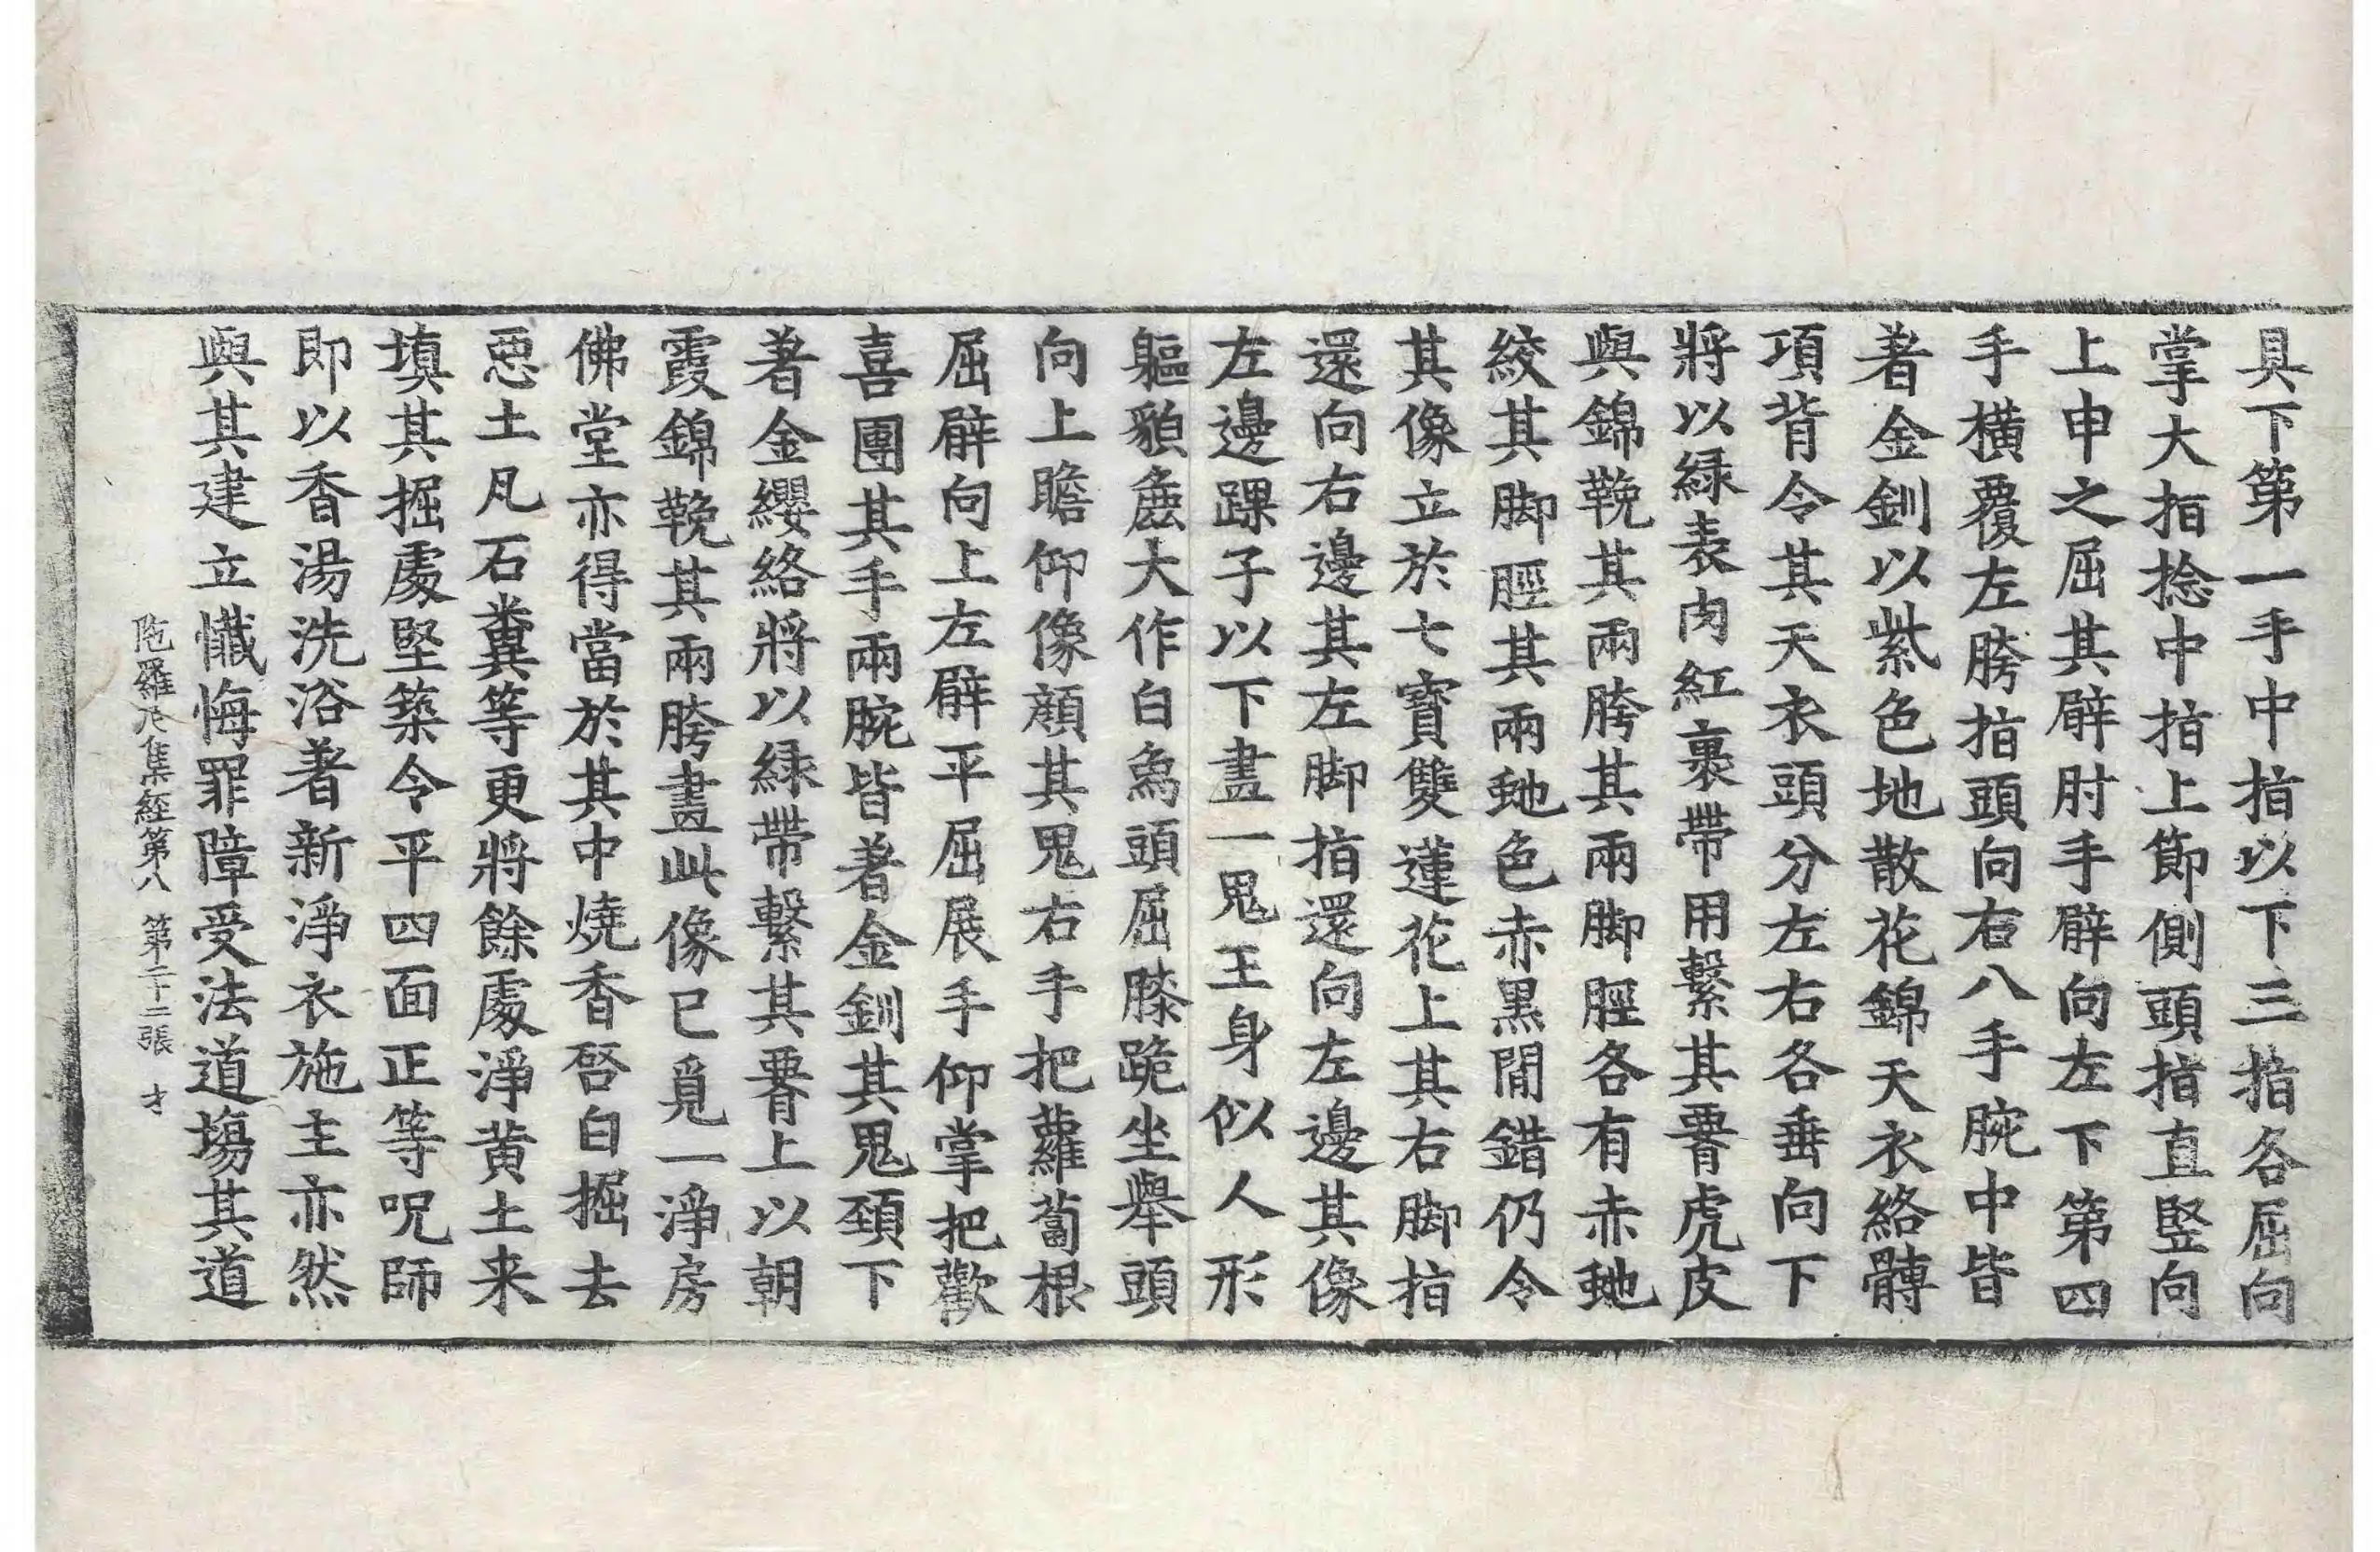 具下第一手中中指以下三指各屈向
掌大指捻中指上節側頭指直竪向
上申之屈其臂肘手臂向左下第四
手橫覆左胯指頭向右八手腕中皆
著金釧以紫色地散花錦天衣絡髆
項背令其天衣頭分左右各垂向下
將以綠表肉紅裏帶用繫其䙅虎皮
與錦鞔其兩胯其兩脚脛各有赤虵
絞其脚脛其兩虵色赤黑閒錯仍令
其像立於七寶雙蓮花上其右脚指
還向右邊其左脚指還向左邊其像
左邊踝子以下畫一鬼王身似人形
軀貌麁大作白象頭屈膝跪坐舉頭
向上瞻仰像顔其鬼右手把蘿蔔根
屈臂向上左臂平屈展手仰掌把歡
喜團其手兩腕皆著金釧其鬼頚下
著金纓絡將以綠帶繫其䙅上以朝
霞錦鞔其兩胯畫此像已覓一淨房
佛堂亦得當於其中燒香啓白掘去
惡土凡石糞等更將餘處淨黃土来
填其掘處堅築令平四面正等呪師
即以香湯洗浴著新淨衣施主亦然
與其建立懺悔罪障受法道場其道
陁羅尼集經第八 第二十二張 才